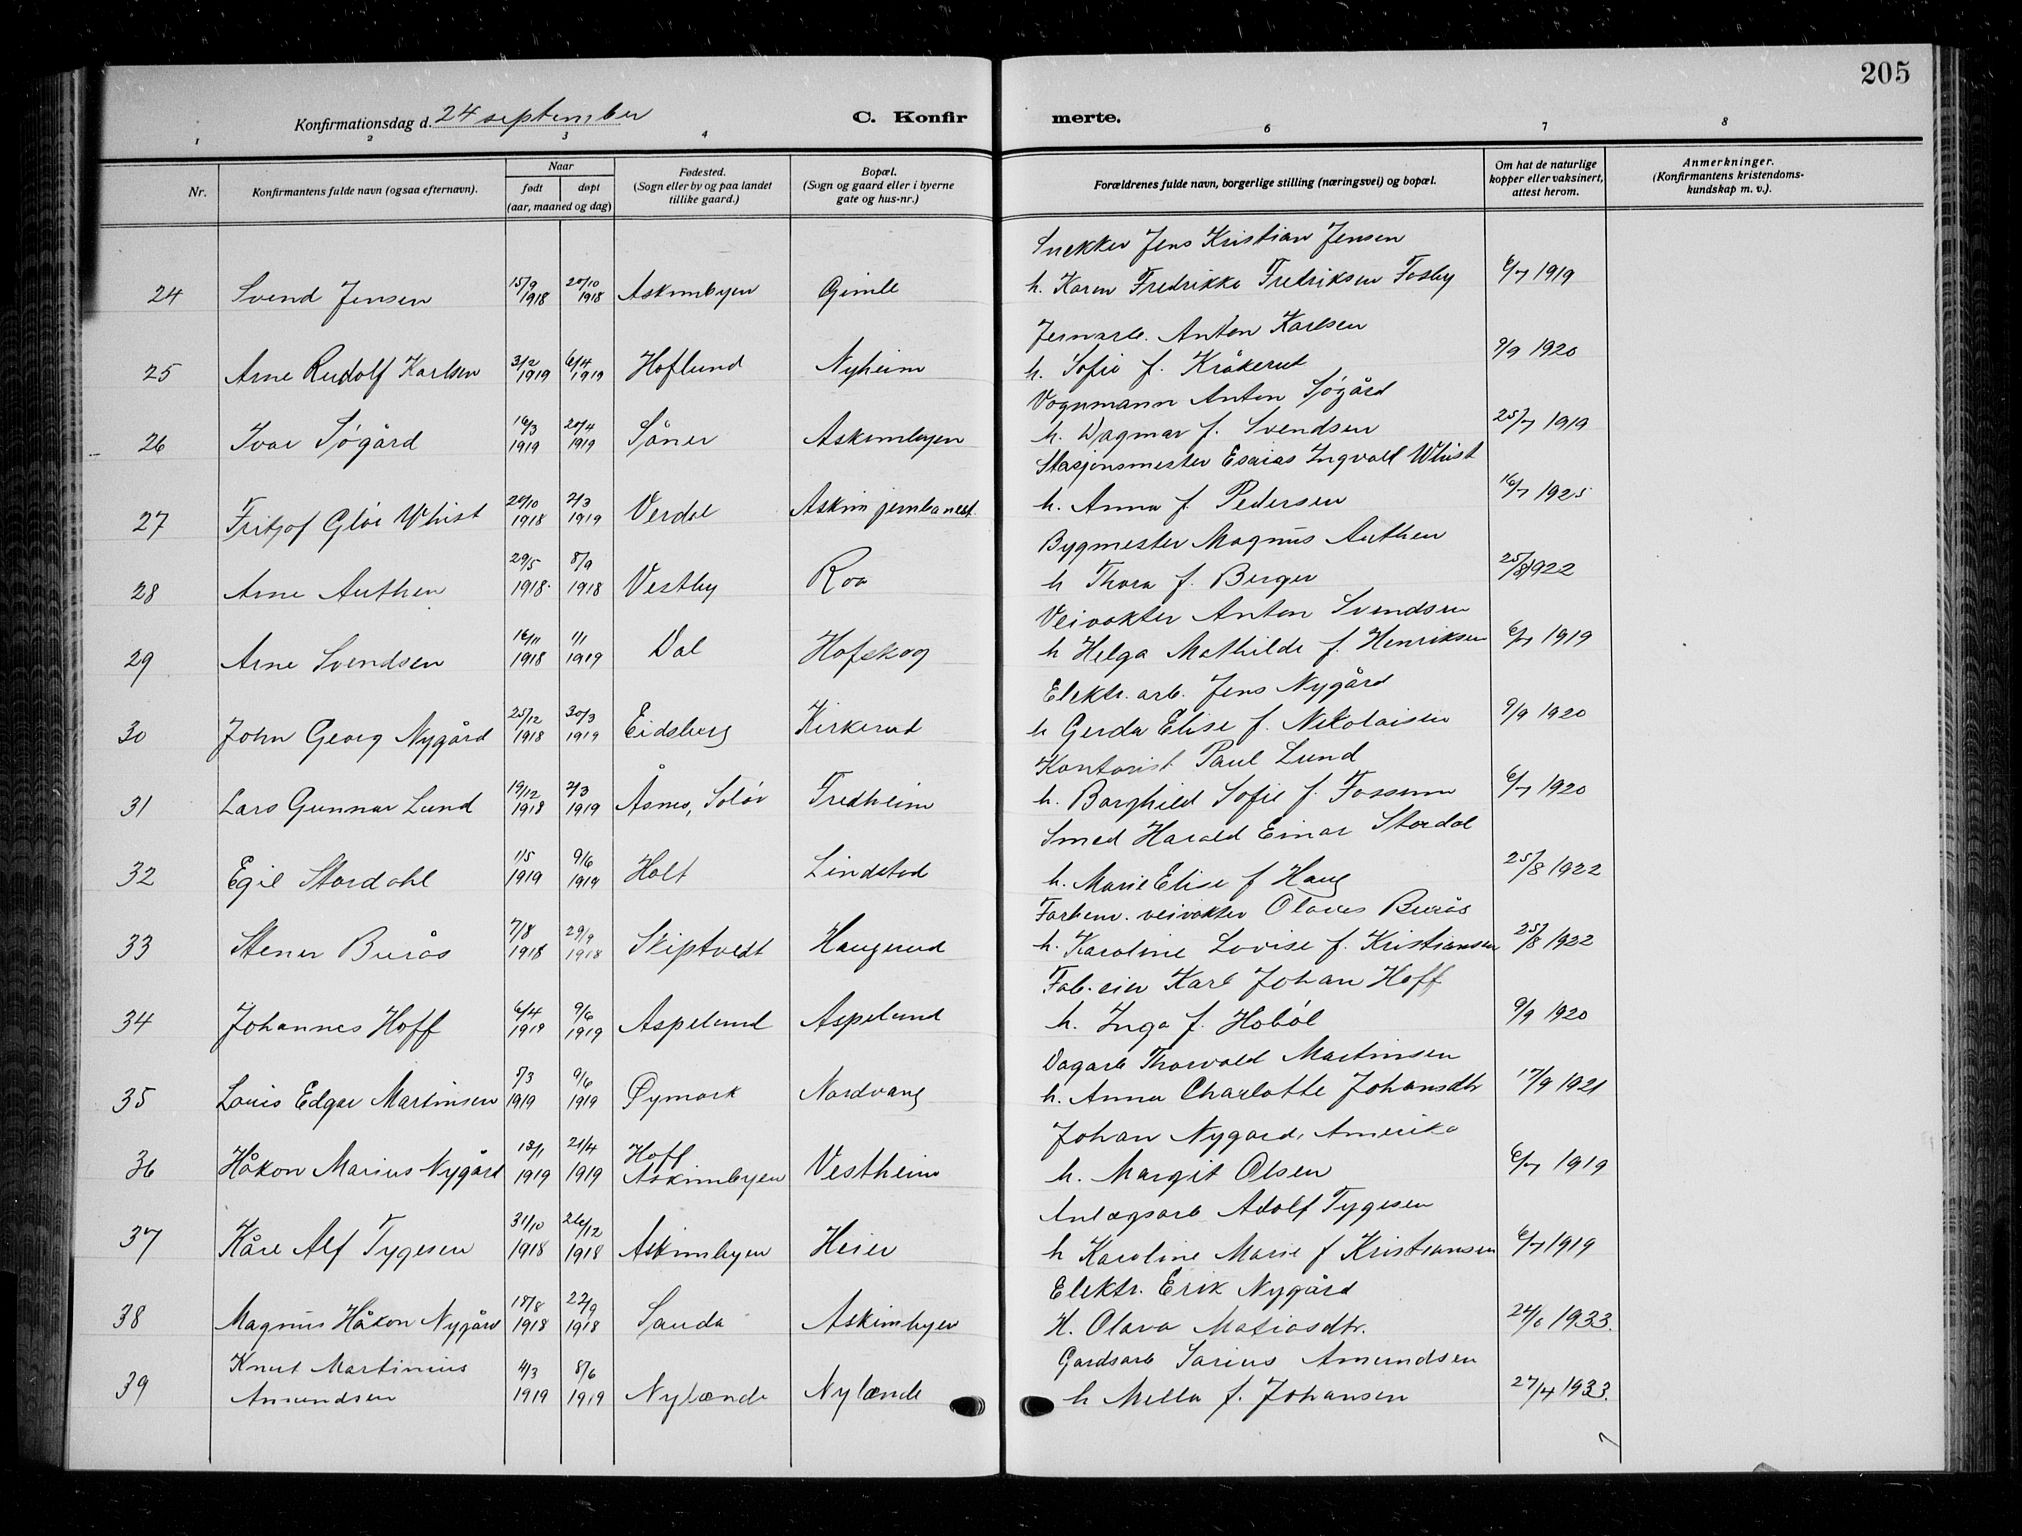 205
Konfirmationsdag d. 24 september
C. Konfirmerte.
1 2 3 4 6 7 8
Nr. Konfirmantens fulde navn (ogsaa efternavn). Naar født døpt (aar, maaned og dag) Fødested. (Sogn eller by og paa landet tillike gaard.) Bopæl. (Sogn og gaard eller i byerne gate og hus-nr.) Forældrenes fulde navn, borgerlige stilling (næringsvei) og bopæl. Om hat de naturlige kopper eller vaksinert, attest herom. Anmerkninger. (Konfirmantens kristendomskundskap m. v.).
Snekker Jens Kristian Jensen
24 Svend Jensen 15/9 1918 20/10 1918 Askimbyen Gimle h. Karen Fredrikke Fredriksen Fosby 6/7 1919
Jernarb. Anton Karlsen
25 Arne Rudolf Karlsen 3/2 1919 6/4 1919 Hoflund Nyheim h. Sofie f. Kråkerud 9/9 1920
Vognmann Anton Sjøgård
26 Ivar Sjøgård 16/3 1919 20/4 1919 Såner Askimbyen h. Dagmar f. Svendsen 25/7 1919
Stasjonsmester Esaias Ingvald Whist
27 Fritjof Glør Whist 20/10 1918 2/3 1919 Verdal Askim jernbanest. h. Anna f. Pedersen 16/7 1925
Bygmester Magnus Authen
28 Arne Authen 29/5 1918 8/9 1918 Vestby Roa h Thora f. Berger 25/8 1922
Veivokter Anton Svendsen
29 Arne Svendsen 16/11 1918 1/1 1919 Dal Hofskog h Helga Mathilde f. Henriksen 6/7 1919
Elektr. arb. Jens Nygård
30 John Georg Nygård 25/12 1918 30/3 1919 Eidsberg Kirkerud h Gerda Elise f. Nikolaisen 9/9 1920
Kontorist Paul Lund
31 Lars Gunnar Lund 19/12 1918 2/3 1919 Åsnes, Solør Fredheim h. Borghild Sofie f. Fossum 6/7 1920
Smed Harald Einar Stordal
32 Egil Stordahl 1/5 1919 9/6 1919 Holt Lindstad h. Marie Elise f Haug 25/8 1922
Forhenv. veivokter Olaves Burås
33 Stener Burås 7/8 1918 29/9 1918 Skiptvedt Haugerud h. Karoline Lovise f. Kristiansen 25/8 1922
Fab. eier Karl Johan Hoff
34 Johannes Hoff 6/4 1919 9/6 1919 Aspelund Aspelund h. Inga f. Hobøl 9/9 1920
Dagarb Thorvald Martinsen
35 Louis Edgar Martinsen 7/3 1919 9/6 1919 Øymark Nordvang h. Anna Charlotte Johansdtr 17/9 1921
Johan Nygard, Amerika
36 Håkon Marius Nygård 13/1 1919 21/4 1919 Hoff Askimbyen Vestheim h. Margit Olsen 6/7 1919
Anlægsarb Adolf Tygesen
37 Kåre Alf Tygesen 31/10 1918 26/12 1918 Askimbyen Heier h Karoline Marie f Kristiansen 6/7 1919
Elektr. Erik Nygård
38 Magnus Håkon Nygård 18/8 1918 22/9 1918 Sauda Askimbyen H. Olava Matiasdtr. 24/6 1933.
Knut Martinius Gardsarb Sarius Amundsen
39 Amundsen 4/3 1919 8/6 1919 Nylænde Nylænde h Mella f. Johansen 27/4 1933.